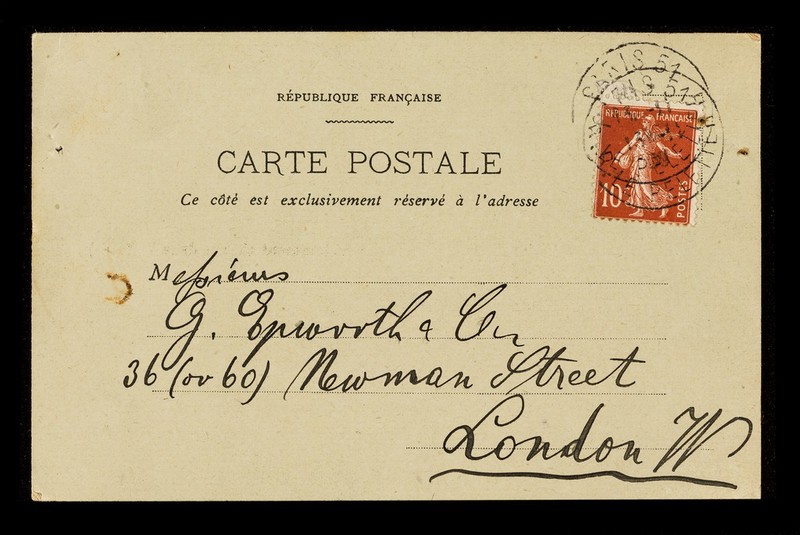 RÉPUBLIQUE FRANÇAISE
CARTE POSTALE
Ce côté est exclusivement réservé à l'adresse
PARIS 51
RÉPUBLIQUE FRANÇAISE
10
POSTES
Messieurs
G. Epworth & Co
36 (ov 60) Newman Street
London W